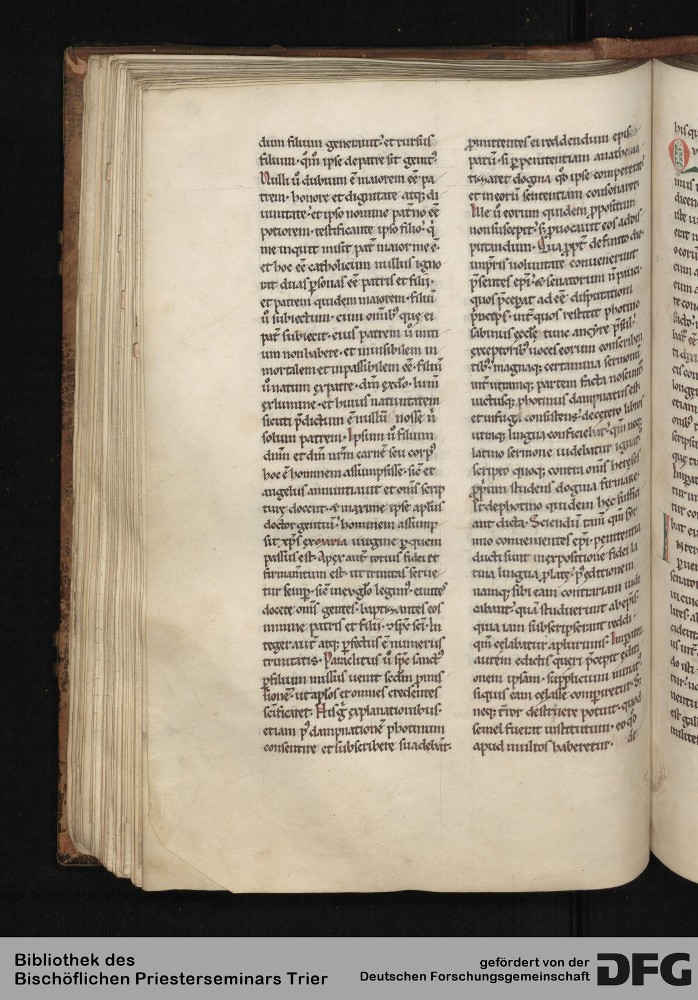 dum filium generavit. et rursus
filium. qm̄ ipse de patre sit genit᷒.
Nulli ū dubium ē maiorem eē pa
trem. honore et dignitate atq; di
vinitate. et ipso nomine pat͛no eē
potiorem. testificante ipso filio. q̇
me inquit misit pat͛ maior me ē.
et hoc eē catholicum nullus igno
rat duas ꝑsonas eē patris et filii.
et patrem quidem maiorem. filiū
ū subiectum. cum omīb᷒ que ei
pat͛ subiecit. eius patrem ū initi
um non habere. et invisibilem in
mortalem et inpassibilem eē. filiū
ū natum ex patre. dm̄ ex dō. lum̄
ex lumine. et huius nativitatem
sicuti p̄dictum ē nullū nosse n̄
solum patrem. Ipsum ū filium
dnm̄ et dm̄ nrm̄ carnē seu corp᷒
hoc ē hominem assumpsisse. sic̄ et
angelus annuntiavit et om̄s scrip
turę docent. & maxime ipse apl̄us
doctor gentiū. hominem assump
sit xp̄s ex maria virgine ꝑ quem
passus est. Apex aut̄ totius fidei et
firmantium est. ut trinitas serve
tur semp̄. sic̄ in evglō legim᷒. euntes
docete om̄s gentes. baptizantes eos
in nomine patris et filii. & sp̄c sc̄i. In
teger aut̄ atq; ꝑfectus ē numerus
trinitatis. Paraclitus ū sp̄c sanct᷒
ꝑ filium missus venit sc̄dm ꝓmis
sionē. ut ap̄los et omnes credentes
sc̄ificaret. His g͛ explanationibus.
etiam p᷒ dampnationē photinum
consentire et subscribere suadebāt.
ꝓmittentes ei reddendum episco
patū. si ꝑ penitentiam anathema
tizaret dogma qd̄ ipse compererat.
et in eorū sententiam consonaret.
Ille ū eorum quidem ꝓpositum
non suscepit. s; ꝓvocavit eos ad dis
putandum. Qua ꝓpt͛ definito die.
imꝑris voluntate convenerunt
p̄sentes ep̄i. & senatorum n̄ pauci.
quos p̄cepat ad eē disputationi
p̄nceps. int͛ quos restitit photino
basinus eccłę tunc ancyrę p̄sul.
exceptorib᷒ voces eorum conscriben
tib᷒. magnaq; certamina sermonū
int͛ utramq; partem facta noscunt᷒
victusq; photinus dampnatus est.
et in fuga consistens. de cetero libros
utraq; lingua conficiebat. qm̄ neq;
latino sermone videbatur ignar᷒
scripsit quoq; contra om̄s hereses
ꝓprium studens dogma firmare.
s; de photino quidem hęc suffici
ant dicta. Sciendū tam̄ qm̄ sir
mio convenientes ep̄i. penitentia
ducti sunt in expositione fidei la
tina lingua ꝓlatę. p᷒ editionem
namq; sibi eam contrariam iudi
cabant. qua studuerunt ab ep̄is.
quia iam subscripserant reddi.
qm̄ celabatur a plurimis. Imꝑator
autem edictis queri p̄cepit editi
onem ipsam. supplicium minat᷒
si quis eam celasse comprobaretur. S;
neq; t͛ror destruere potuit. quod
semel fuerat institutum. eo qd̄
apud multos haberetur. de
Bibliothek des
Bischöflichen Priesterseminars Trier
gefördert von der
Deutschen Forschungsgemeinschaft
DFG